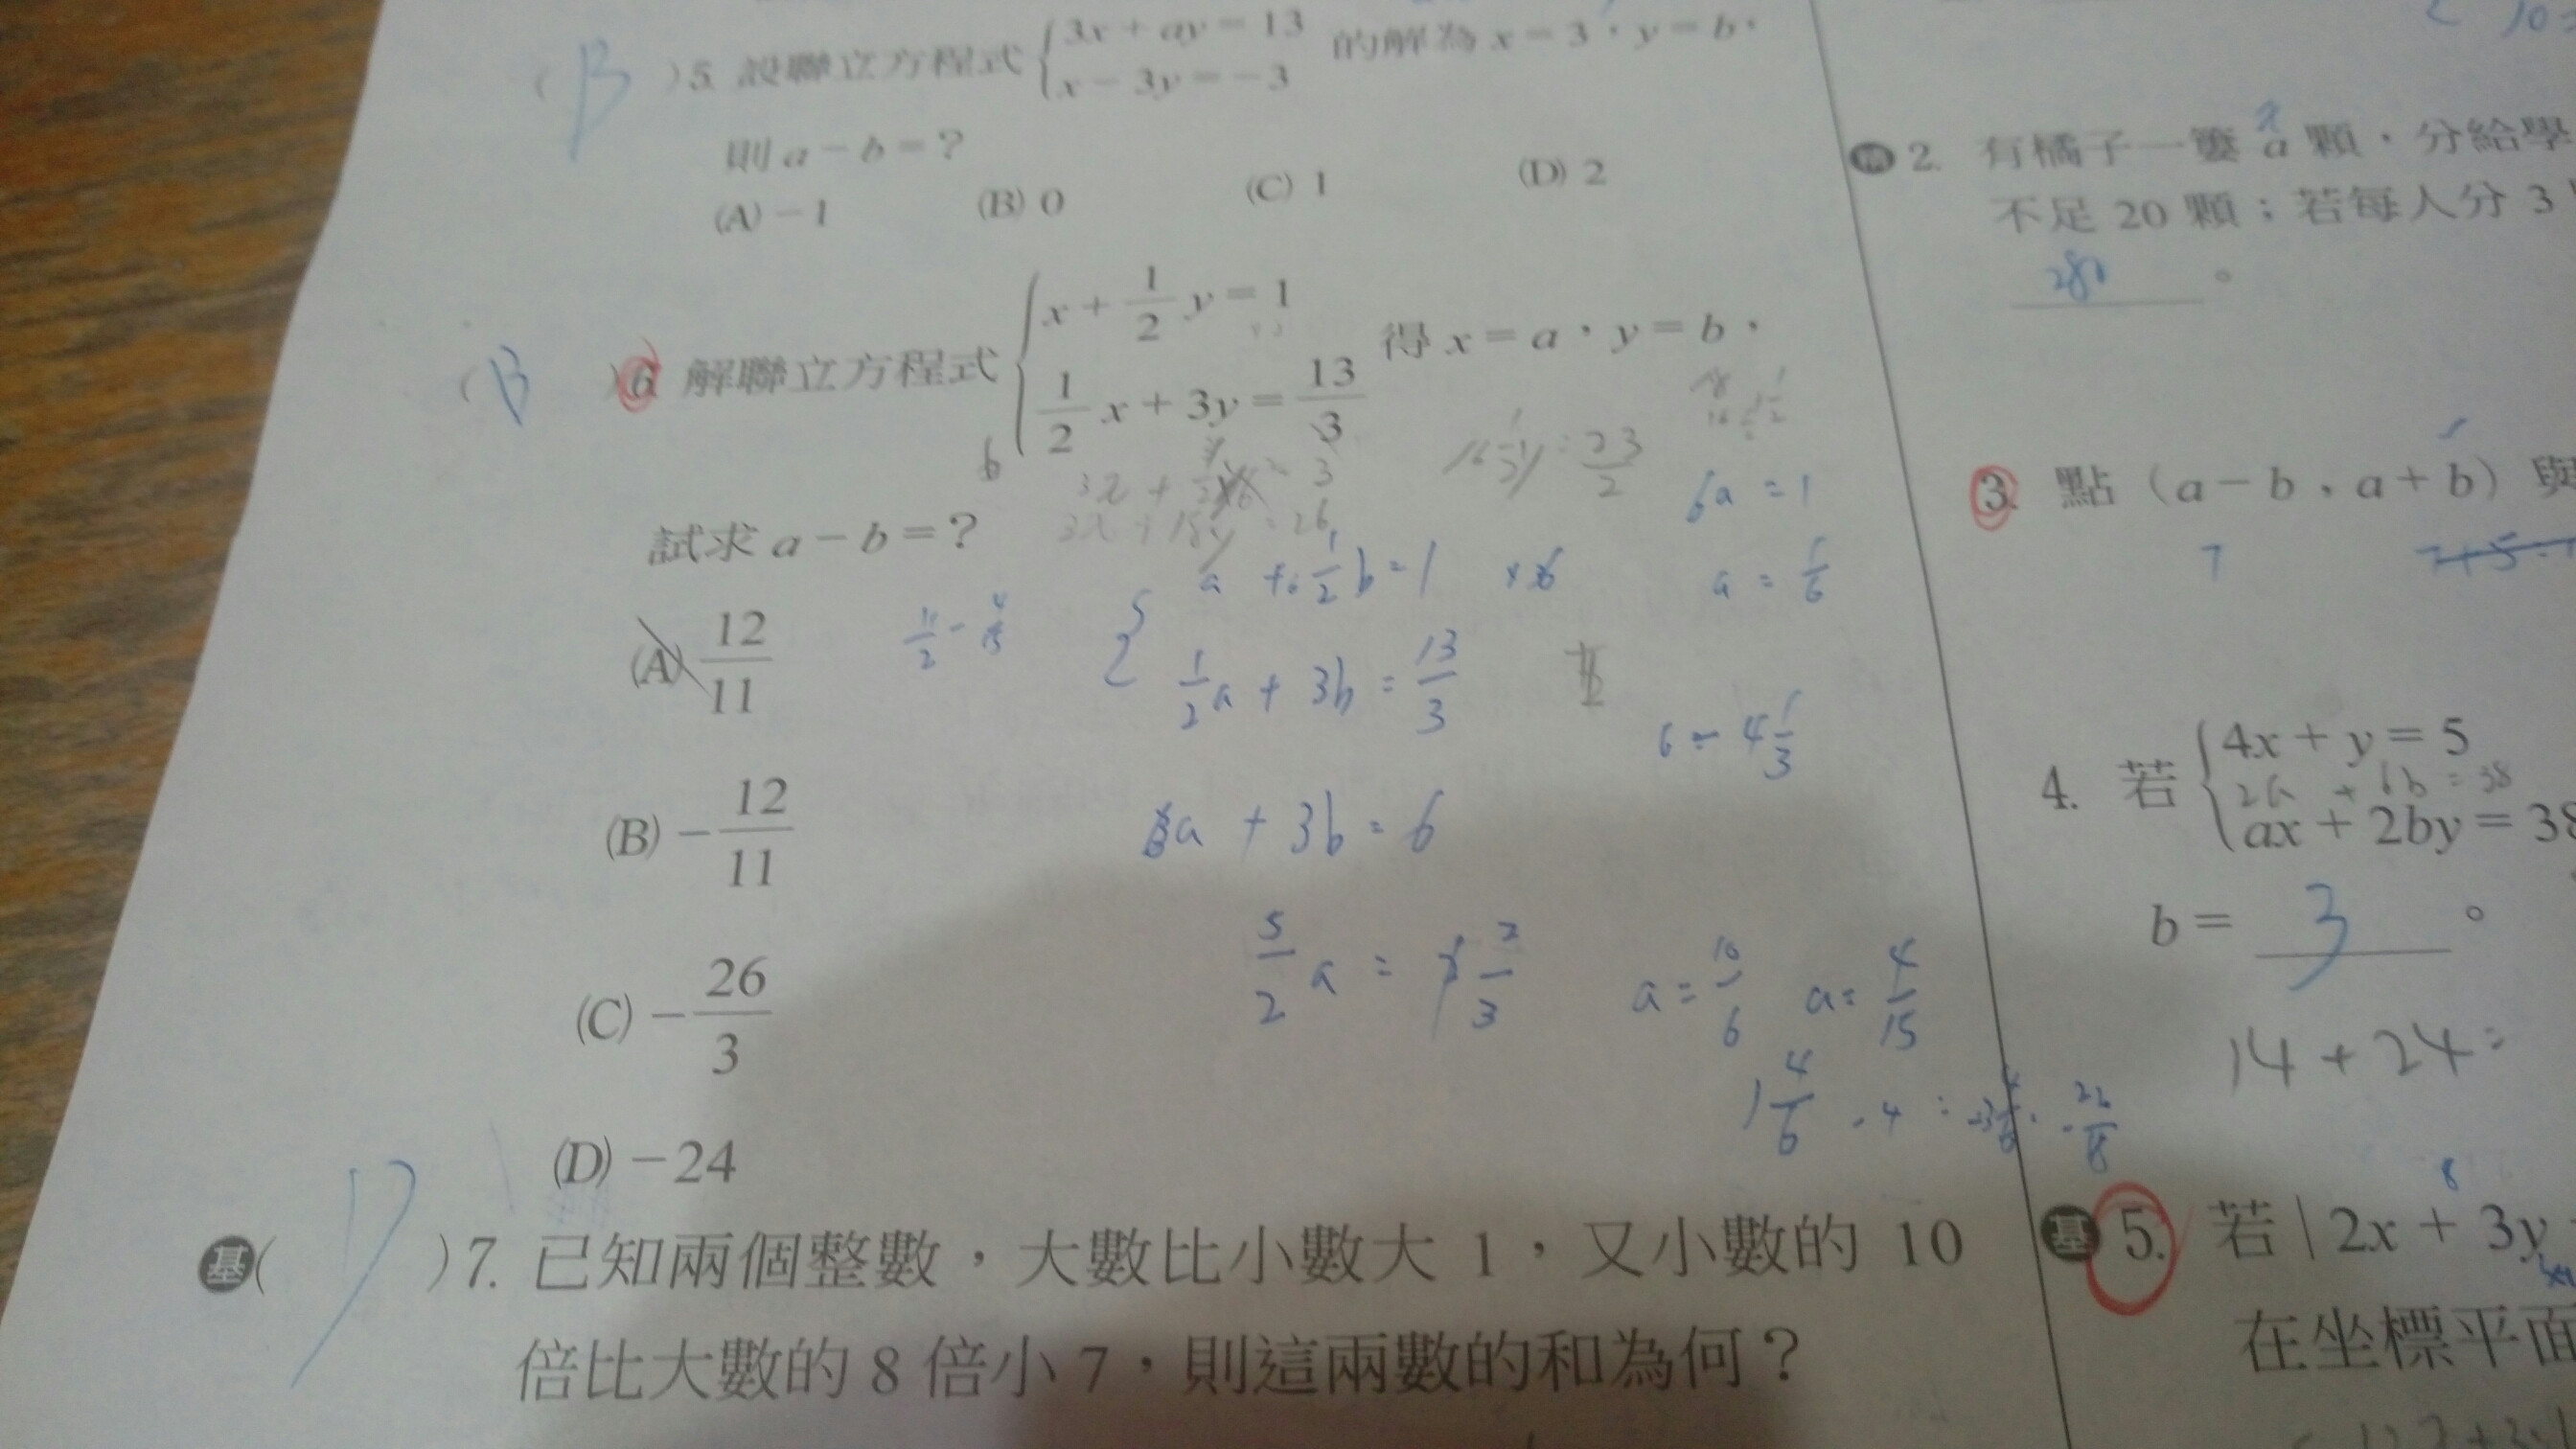 ( B )5. 設聯立方程式 { 3x + ay = 13 的解為 x = 3，y = b，
x − 3y = −3
則 a − b = ?
(A) −1 (B) 0 (C) 1 (D) 2
( B )6. 解聯立方程式 { x + 1/2 y = 1 得 x = a，y = b，
1/2 x + 3y = 13/3
3x + 18y = 26
試求 a − b = ?
6a = 1
a + 1/2 b = 1
a = 1/6
(A) 12/11
1/2 a + 3b = 13/3
6 - 4 1/3
(B) − 12/11
a + 3b = 6
(C) − 26/3
5/2 a = 2/3
a = 10/6
a = 4/15
1 4/6 - 4
(D) −24
基( D )7. 已知兩個整數，大數比小數大 1，又小數的 10
倍比大數的 8 倍小 7，則這兩數的和為何？
2. 有橘子一簍 a 顆，分給學
不足 20 顆；若每人分 3
280 。
3. 點（a − b，a + b）與
7
4. 若 { 4x + y = 5
2a + 6b = 38
ax + 2by = 38
b = 3 。
14 + 24 =
8
基 5. 若 | 2x + 3y
在坐標平面